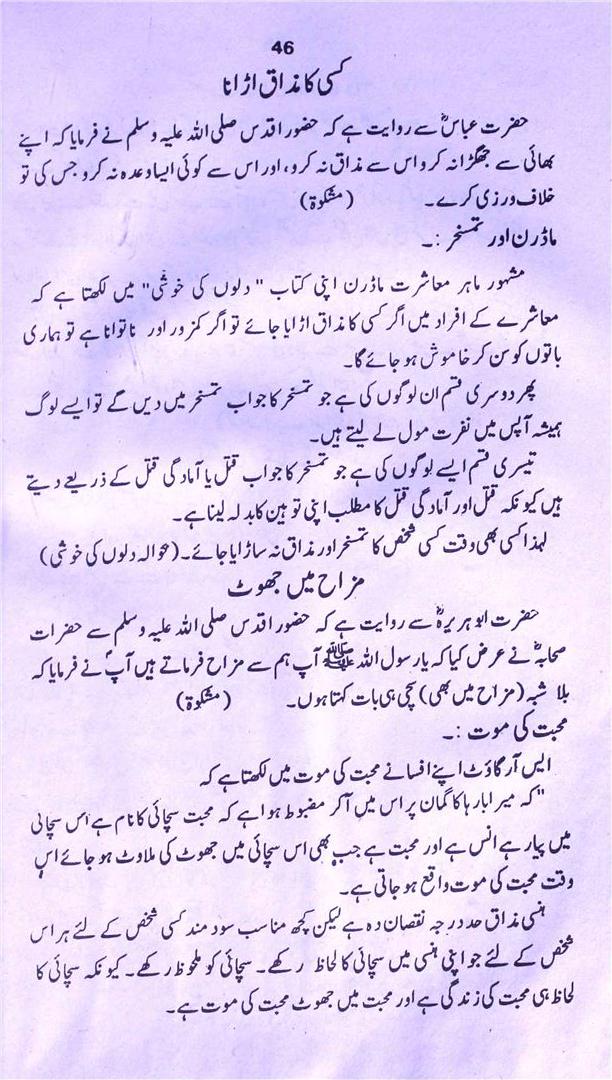 46
کسی کا مذاق اڑانا
حضرت عباسؓ سے روایت ہے کہ حضور اقدس صلی اللہ علیہ وسلم نے فرمایا کہ اپنے
بھائی سے جھگڑا نہ کرو اس سے مذاق نہ کرو، اور اس سے کوئی ایسا وعدہ نہ کرو جس کی تو
خلاف ورزی کرے۔ (مشکوٰۃ)
ماڈرن اور تمسخر :۔
مشہور ماہر معاشرت ماڈرن اپنی کتاب "دلوں کی خوشی" میں لکھتا ہے کہ
معاشرے کے افراد میں اگر کسی کا مذاق اڑایا جائے تو اگر کمزور اور ناتوانا ہے تو ہماری
باتوں کو سن کر خاموش ہو جائے گا۔
پھر دوسری قسم ان لوگوں کی ہے جو تمسخر کا جواب تمسخر میں دیں گے تو ایسے لوگ
ہمیشہ آپس میں نفرت مول لے لیتے ہیں۔
تیسری قسم ایسے لوگوں کی ہے جو تمسخر کا جواب قتل یا آمادگی قتل کے ذریعے دیتے
ہیں کیونکہ قتل اور آمادگی قتل کا مطلب اپنی توہین کا بدلہ لینا ہے۔
لہذا کسی بھی وقت کسی شخص کا تمسخر اور مذاق نہ سا ڑایا جائے۔ (حوالہ دلوں کی خوشی)
مزاح میں جھوٹ
حضرت ابو ہریرہؓ سے روایت ہے کہ حضور اقدس صلی اللہ علیہ وسلم سے حضرات
صحابہؓ نے عرض کیا کہ یا رسول اللہ ﷺ آپ ہم سے مزاح فرماتے ہیں آپؐ نے فرمایا کہ
بلا شبہ (مزاح میں بھی) سچی ہی بات کہتا ہوں۔ (مشکوٰۃ)
محبت کی موت :۔
ایس آر گاؤٹ اپنے افسانے محبت کی موت میں لکھتا ہے کہ
"کہ میرا بارہا کا گمان پر اس میں آکر مضبوط ہوا ہے کہ محبت سچائی کا نام ہے اس سچائی
میں پیار ہے انس ہے اور محبت ہے جب بھی اس سچائی میں جھوٹ کی ملاوٹ ہو جائے اس
وقت محبت کی موت واقع ہو جاتی ہے۔
ہنسی مذاق حد درجہ نقصان دہ ہے لیکن کچھ مناسب سود مند کسی شخص کے لئے ہر اس
شخص کے لئے جو اپنی ہنسی میں سچائی کا لحاظ رکھے۔ سچائی کو ملحوظ رکھے۔ کیونکہ سچائی کا
لحاظ ہی محبت کی زندگی ہے اور محبت میں جھوٹ محبت کی موت ہے۔